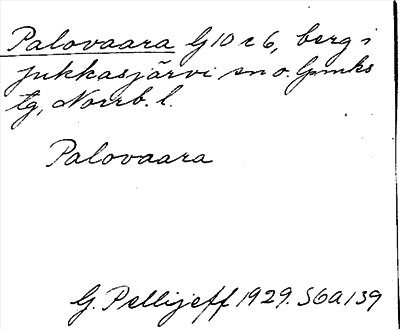 Palovaara G10 c 6, berg i
Jukkasjärvi sn o. Lpmks
tg, Norrb. l.
Palovaara
G. Pellijeff 1929. S6A139